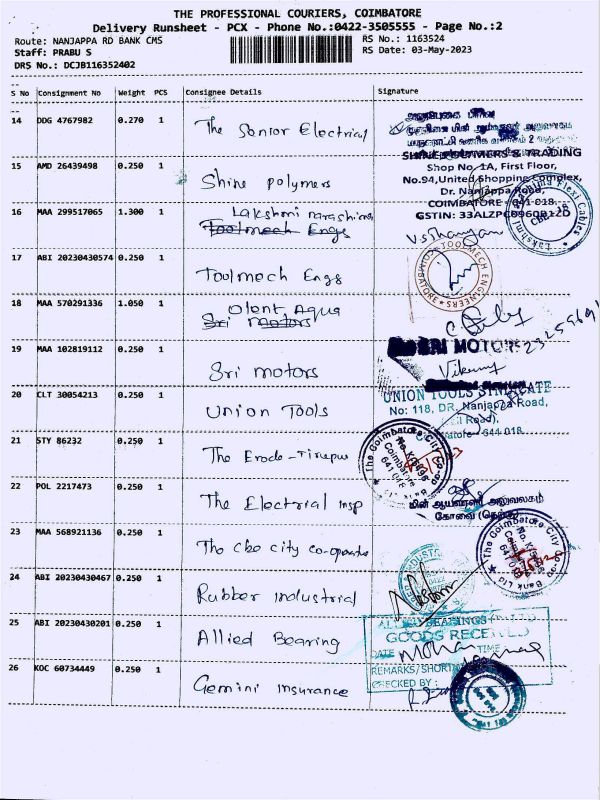 THE PROFESSIONAL COURIERS, COIMBATORE
Delivery Runsheet - PCX - Phone No.:0422-3505555 - Page No.:2
Route: NANJAPPA RD BANK CMS
RS No.: 1163524
Staff: PRABU S
RS Date: 03-May-2023
DRS No.: DCJB116352402
S No Consignment No Weight PCS Consignee Details Signature
14 DDG 4767982 0.270 1 The Senior Electrial
15 AMD 26439498 0.250 1 Shine polymers
POLYMERS & TRADING
Shop No. 1A, First Floor,
No.94,United Shopping Complex,
Dr. Nanjappa Road,
COIMBATORE - 641 018.
GSTIN:
16 MAA 299517065 1.300 1 Lakshmi
Toolmech Engs
Flexi Cables
Lakshmi
17 ABI 20230430574 0.250 1 Toolmech Engs
TOOLMECH ENGINEERS
COIMBATORE
18 MAA 570291336 1.050 1 Olent Aqua
Sri Motors
19 MAA 102819112 0.250 1 Sri motors
SRI MOTORS
20 CLT 30054213 0.250 1 Union Tools
UNION TOOLS SYNDICATE
No: 118, DR. Nanjappa Road,
641 018
21 STY 86232 0.250 1 The Erode-Tirupur
The Coimbatore City
Coimbatore
22 POL 2217473 0.250 1 The Electrial insp
மின் ஆய்வாளர் அலுவலகம்
கோவை
23 MAA 568921136 0.250 1 The cbe city co-operative
The Coimbatore City
Bank Ltd
24 ABI 20230430467 0.250 1 Rubber industrial
25 ABI 20230430201 0.250 1 Allied Bearing
BEARINGS
GOODS RECEIVED
DATE TIME
REMARKS/SHORTAGE
CHECKED BY :
26 KOC 60734449 0.250 1 Gemini insurance